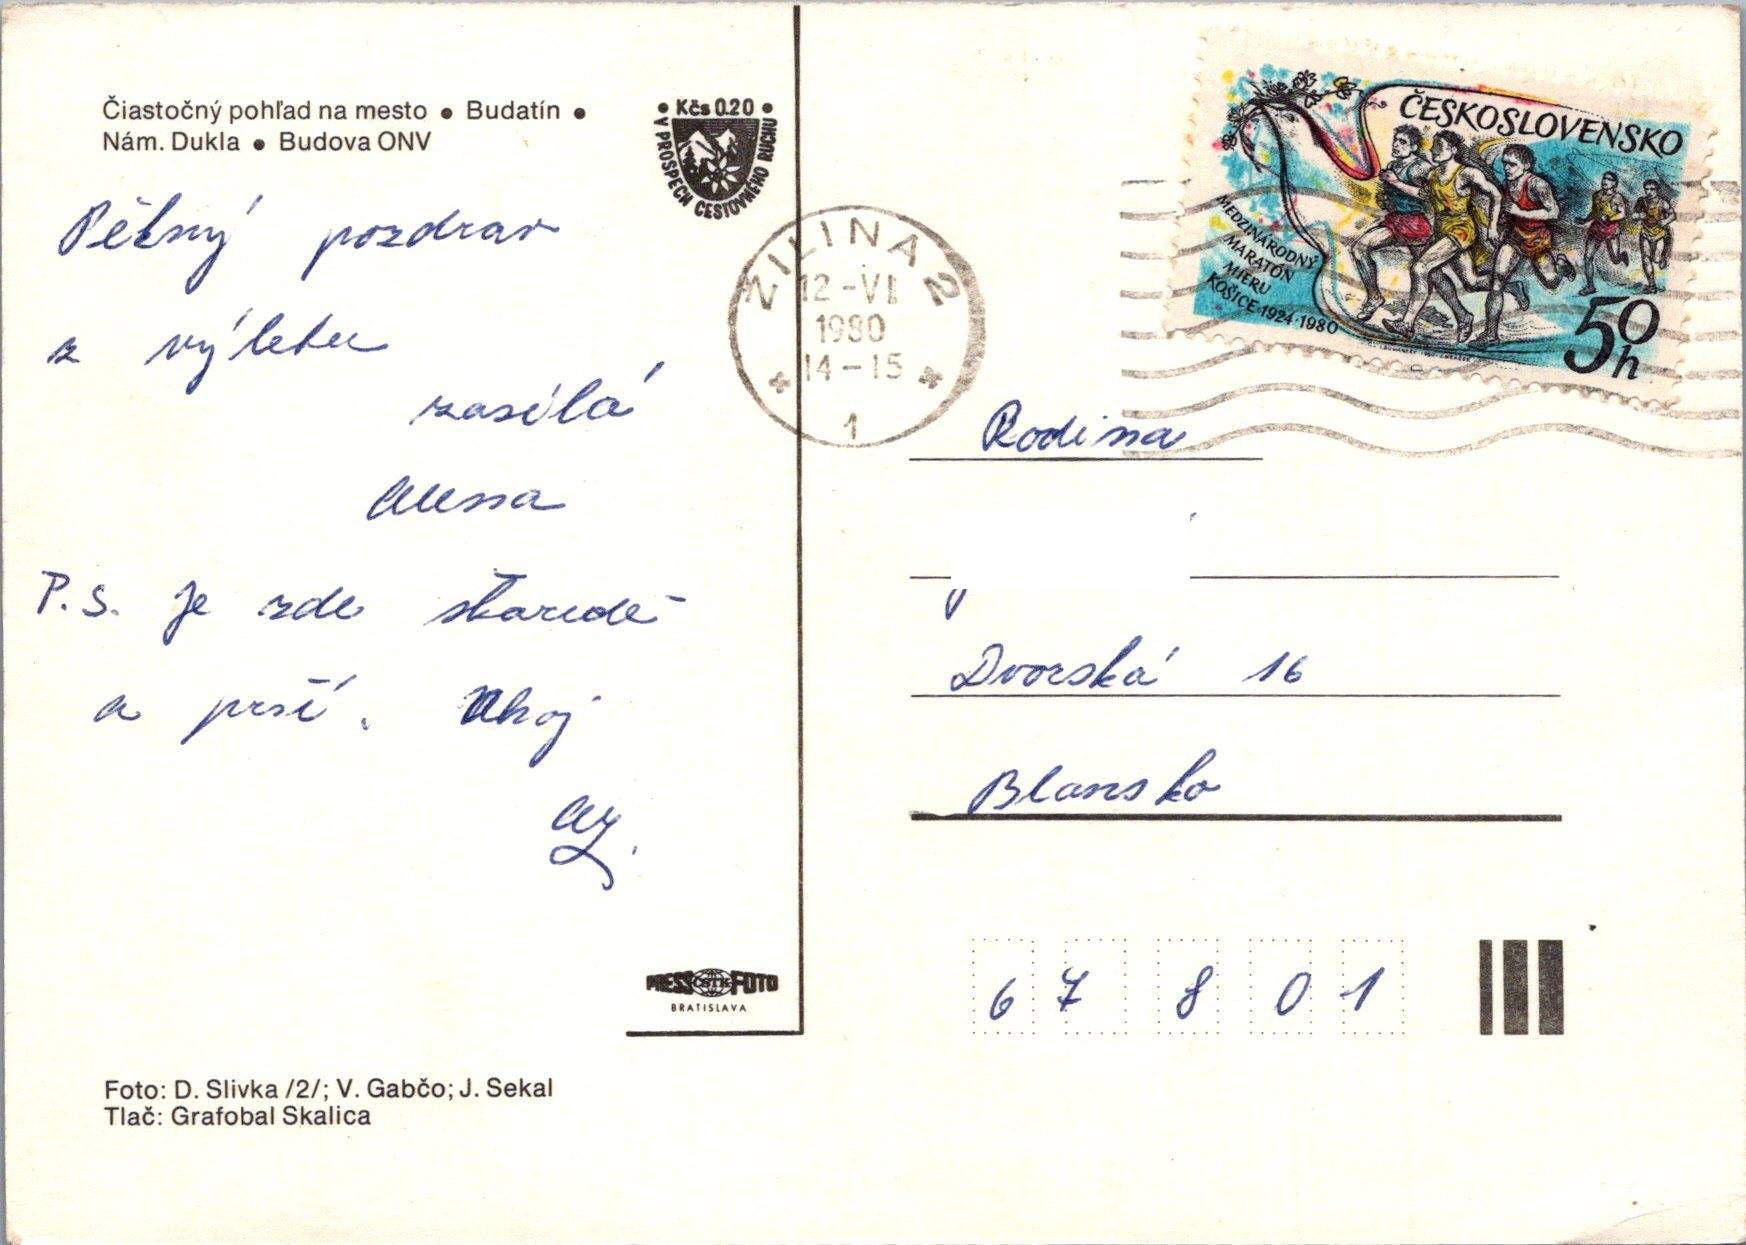 Čiastočný pohľad na mesto ● Budatín ●
Nám. Dukla ● Budova ONV
● Kčs 0.20 ●
V PROSPECH CESTOVNÉHO RUCHU
Pěkný pozdrav
z výletu
zasílá
Alena
P.S. Je zde škaredě
a prší. Ahoj
PRESS ČSTK FOTO
BRATISLAVA
Foto: D. Slivka /2/; V. Gabčo; J. Sekal
Tlač: Grafobal Skalica
ŽILINA 2
12 -VI
1980
14 - 15
1
ČESKOSLOVENSKO
MEDZINÁRODNÝ
MARATÓN
MIERU
KOŠICE·1924·1980
50 h
Rodina
Dvorská 16
Blansko
67 801